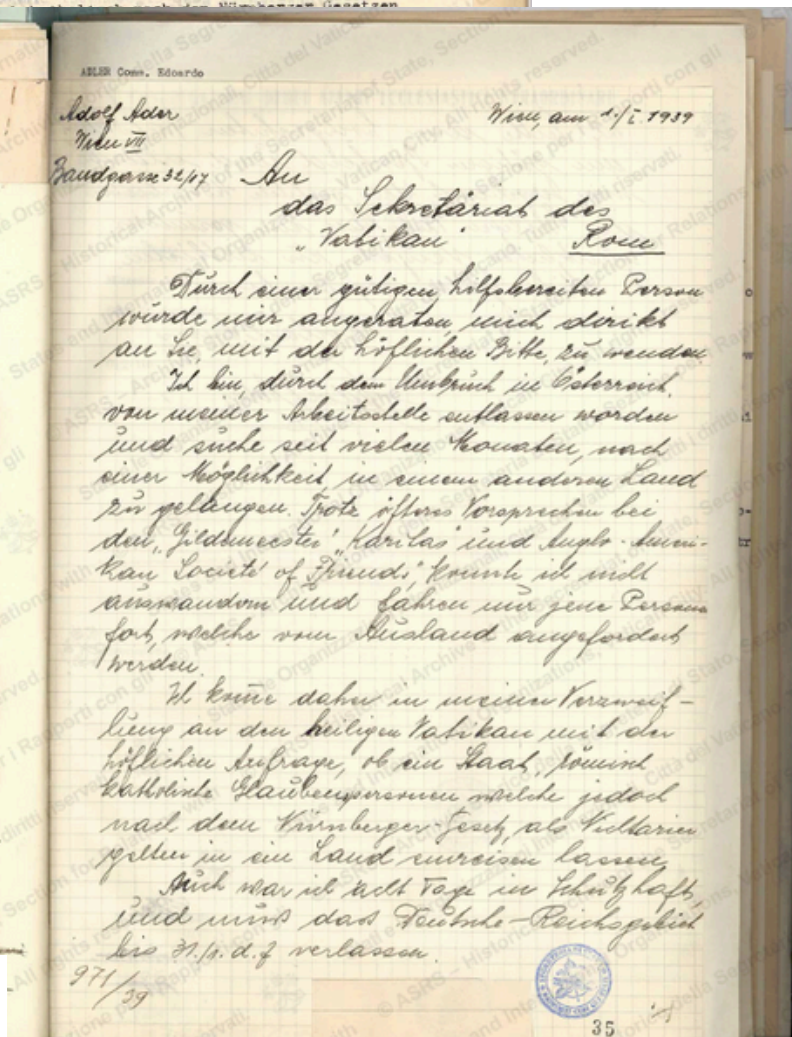 Nürnberger Gesetzen
ADLER Comm. Edoardo
Adolf Ader
Wien VII
Bandgasse 32/17
Wien, am 1./I. 1939
An
das Sekretäriat des
"Vatikan" Rom
Durch einer gütigen hilfsbereiten Person
wurde mir angeraten, mich dirikt
an Sie, mit der höflichen Bitte, zu wenden.
Ich bin, durch dem Umbruch in Österreich,
von meiner Arbeitsstelle entlassen worden
und suche seit vielen Monaten, nach
einer Möglichkeit, in einem anderen Land
zu gelangen. Trotz öfteres Vorsprechen bei
den "Gildemeester" "Karitas" und Anglo-Ameri-
kan Societé of Friends, konnte ich nicht
auswandern und fahren nur jene Personen
fort, welche vom Ausland angefordert
werden.
Ich kome daher in meiner Verzweif-
lung an den heiligen Vatikan mit der
höflichen Anfrage, ob ein Staat, römisch
katholische Glaubenspersonen welche jedoch
nach dem Nürnberger-Gesetz, als Nichtarier
gelten in ein Land einreisen lassen.
Auch war ich acht Tage in Schutzhaft,
und muss das Deutsche-Reichsgebiet
bis 31./1. d. J verlassen.
971/39
35